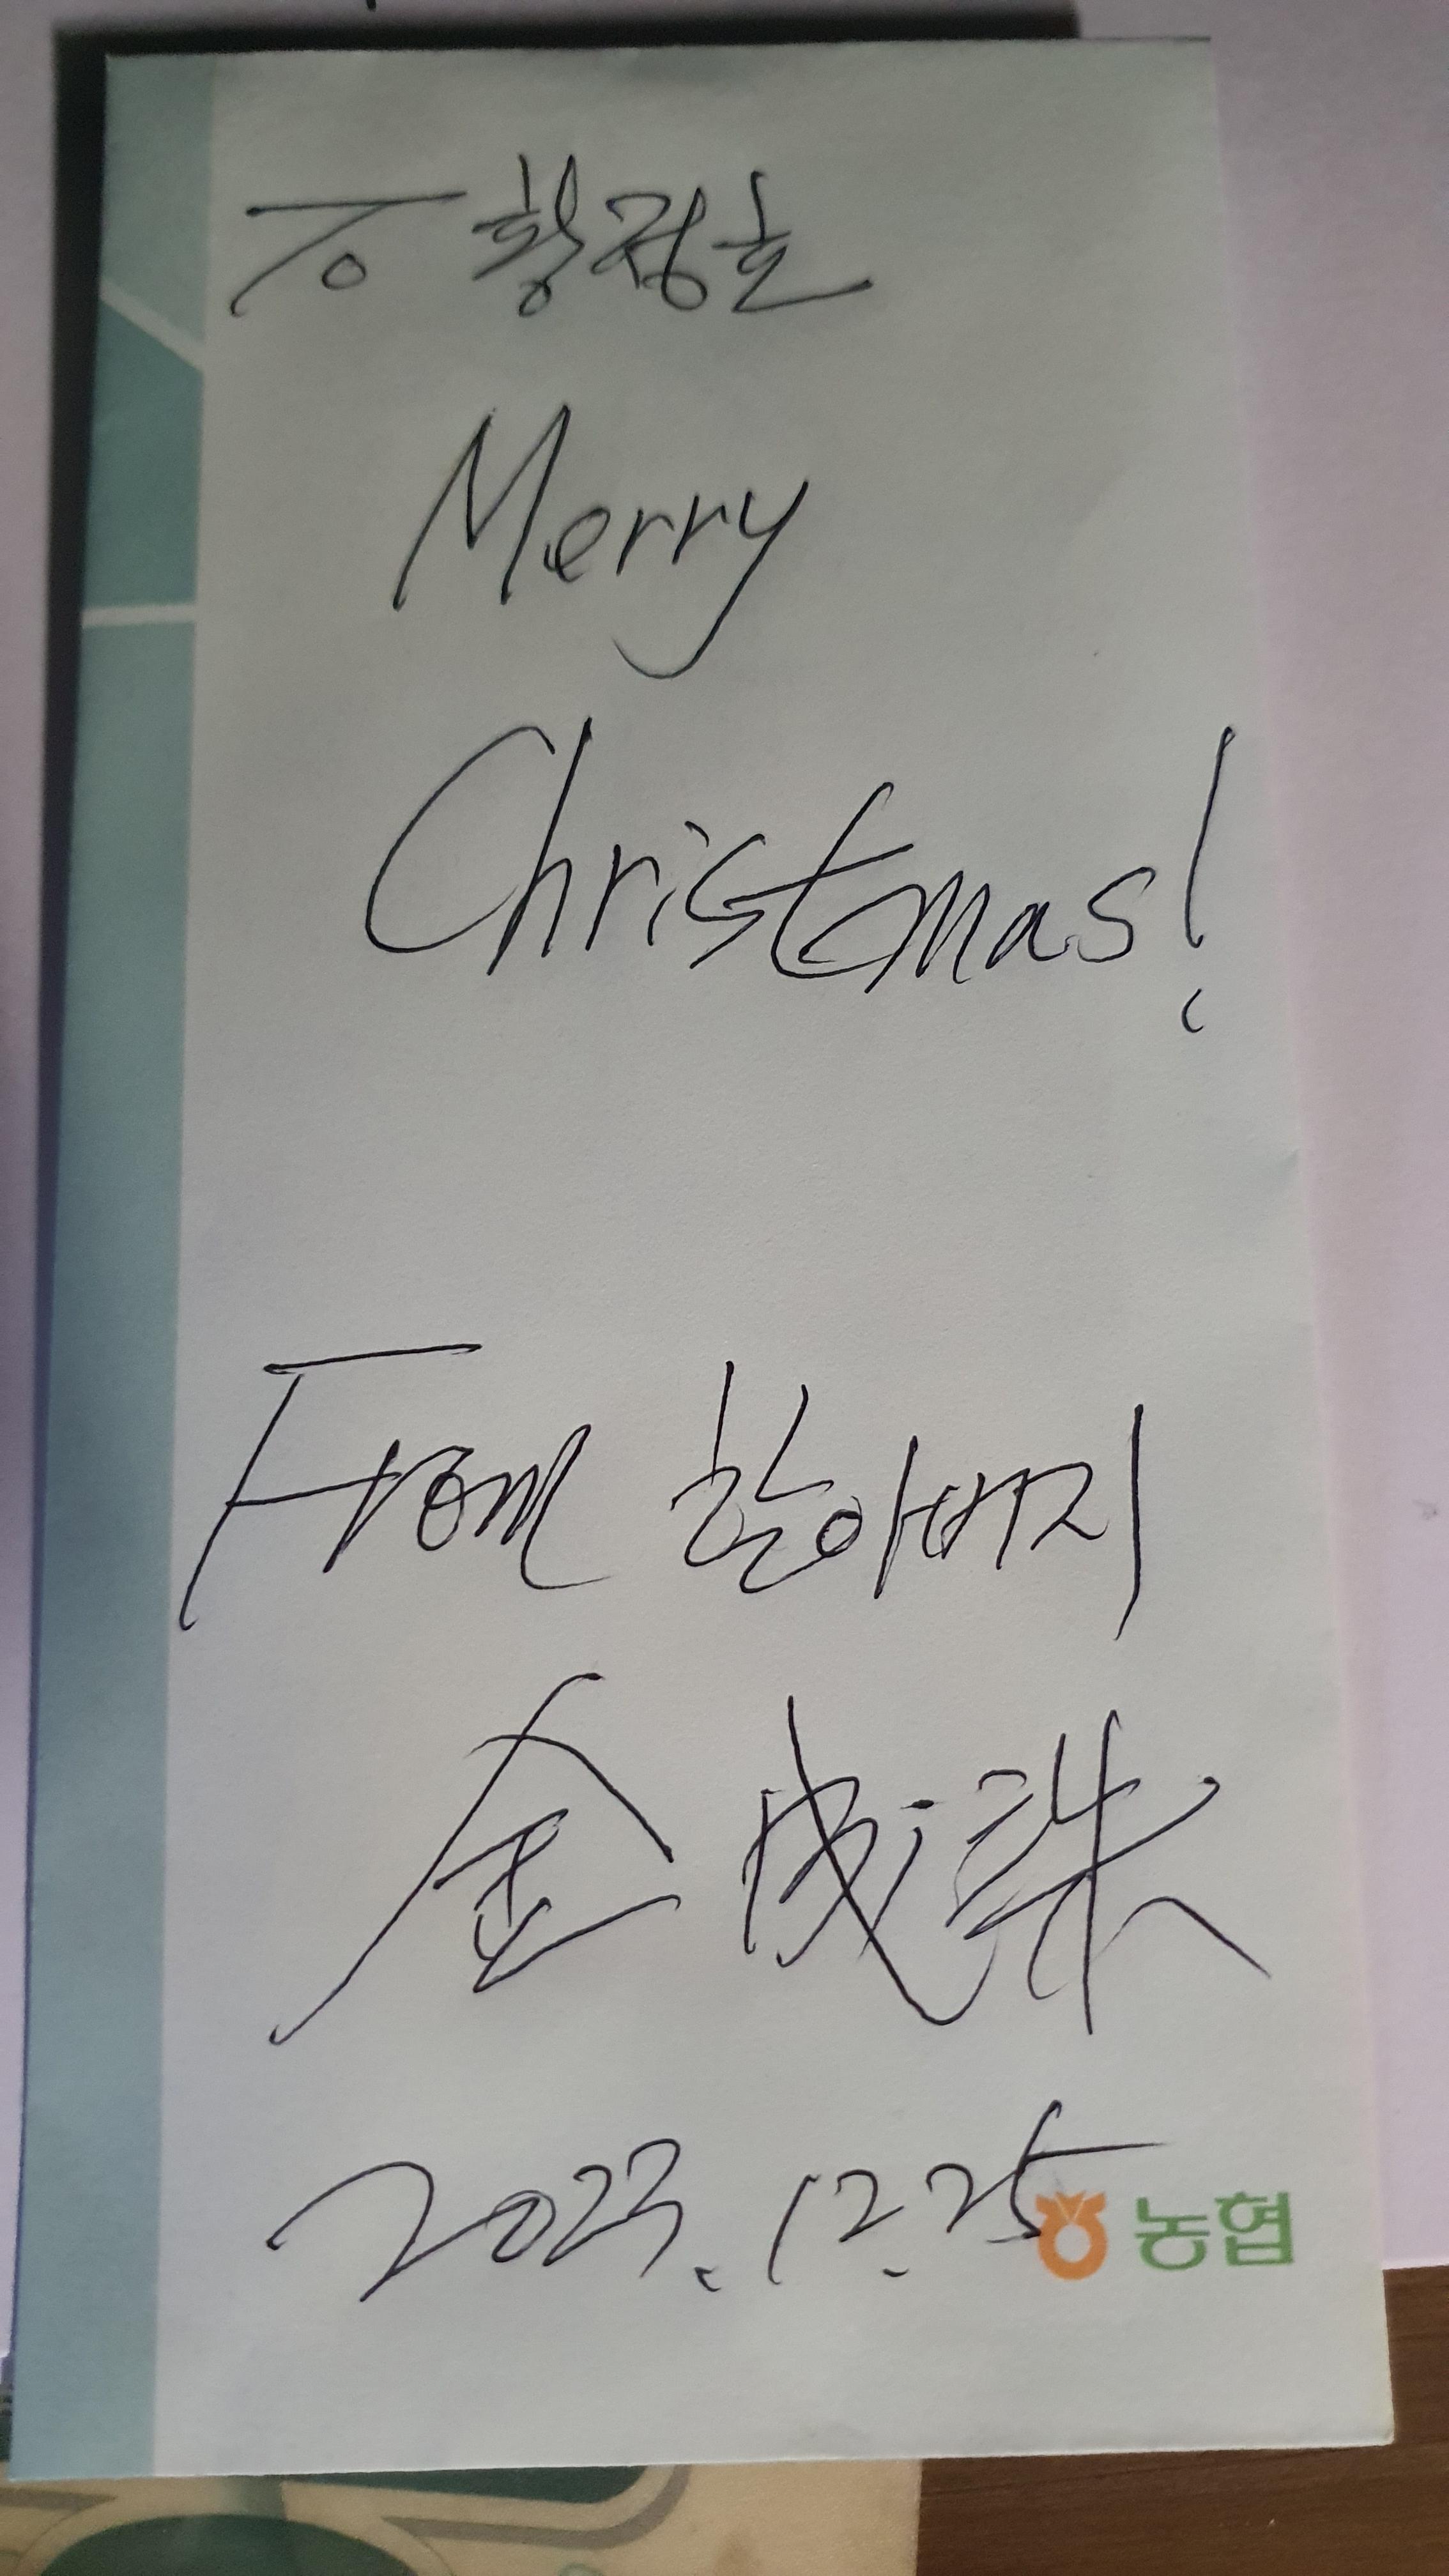 To 황정호
Merry
Christmas!
From 할아버지
金成洙
2023.12.25
농협